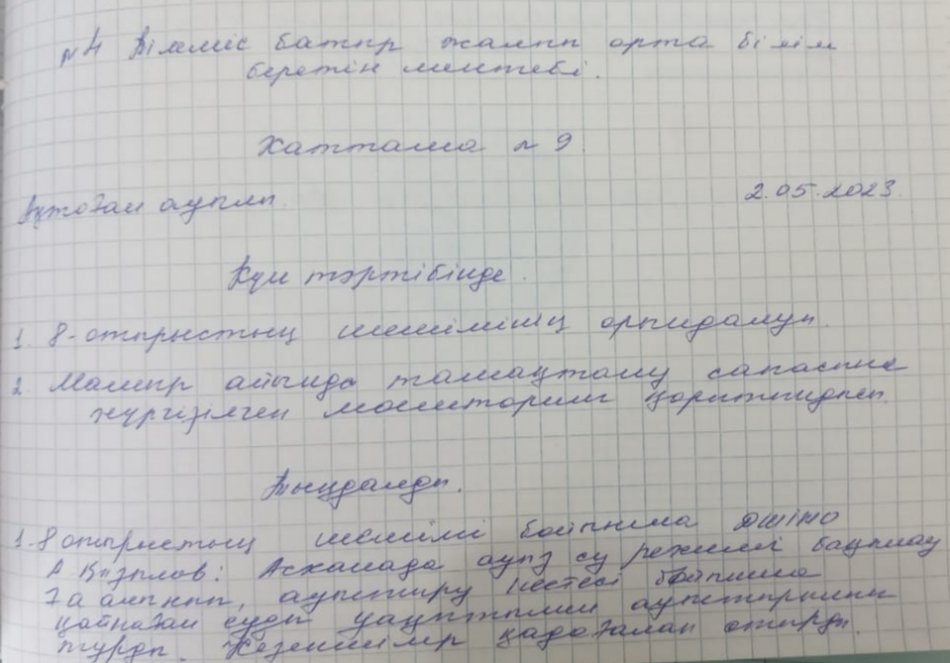 №4 Білміс батыр жалпы орта білім
беретін мектебі.
Хаттама №9.
Ақтоғам ауылы. 2.05.2023.
Күн тәртібінде.
1. 8-отырыстың шешімінің орындалуы.
2 Мамыр айында тамақтану сапасына
жүргізілген мониторинг қорытындысы.
Тыңдалды.
1. 8 отырыстың шешімі бойынша ДШІЖО
А : Асханада ауыз су режимі бақылау
ға алынып, ауыстыру кестесі бойынша
қайнаған суды уақытымен ауыстырылып
тұрды. Кезекшілер қадағалап отырды.